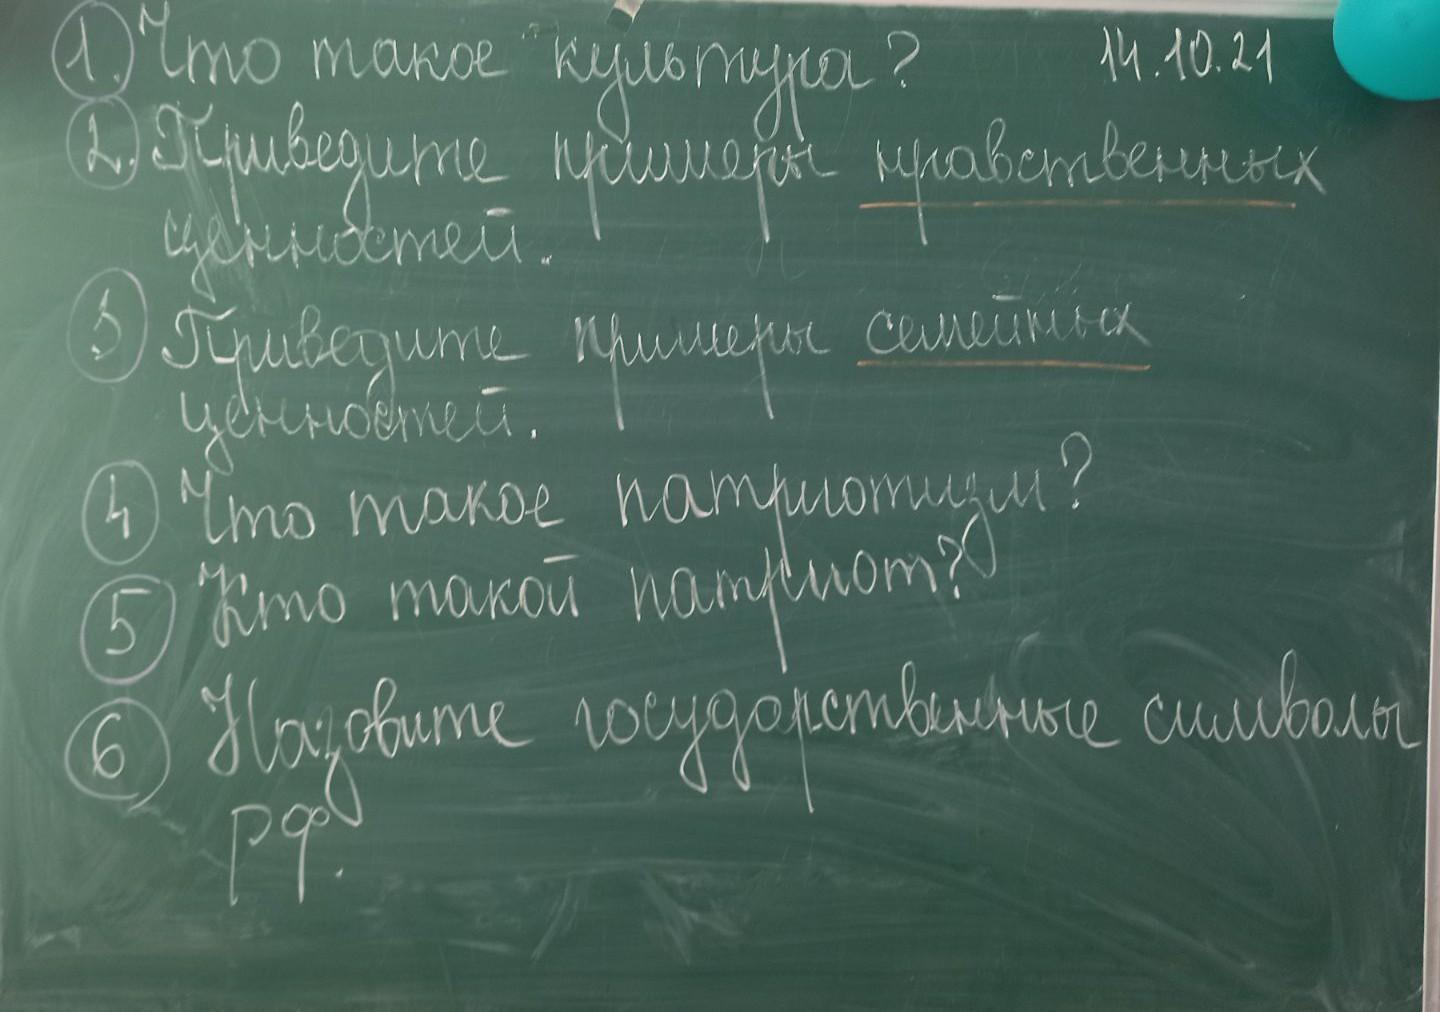 1. Что такое культура? 14.10.21
2. Приведите примеры нравственных
ценностей.
3 Приведите примеры семейных
ценностей.
4 Что такое патриотизм?
5 Кто такой патриот?
6 Назовите государственные символы
РФ.